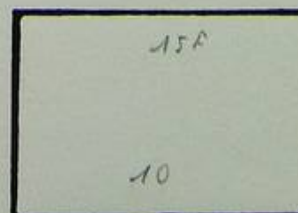 15F
10